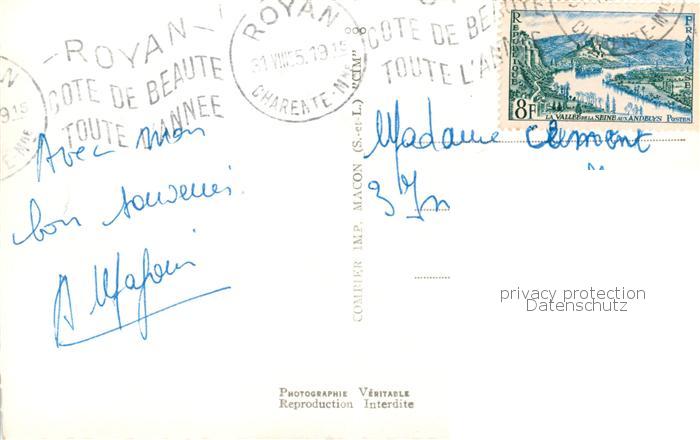 ROYAN
COTE DE BEAUTE
TOUTE L'ANNEE
ROYAN
CHARENTE-Mme
COTE DE BEAUTE
TOUTE L'ANNEE
CHARENTE-Mme
REPUBLIQUE FRANCAISE
8F
LA VALLEE DE LA SEINE AUX ANDELYS POSTES
Avec mon
bon souvenir
Madame Clement
COMBIER IMP. MACON (S.-et-L.) "CIM"
privacy protection
Datenschutz
PHOTOGRAPHIE VÉRITABLE
Reproduction Interdite